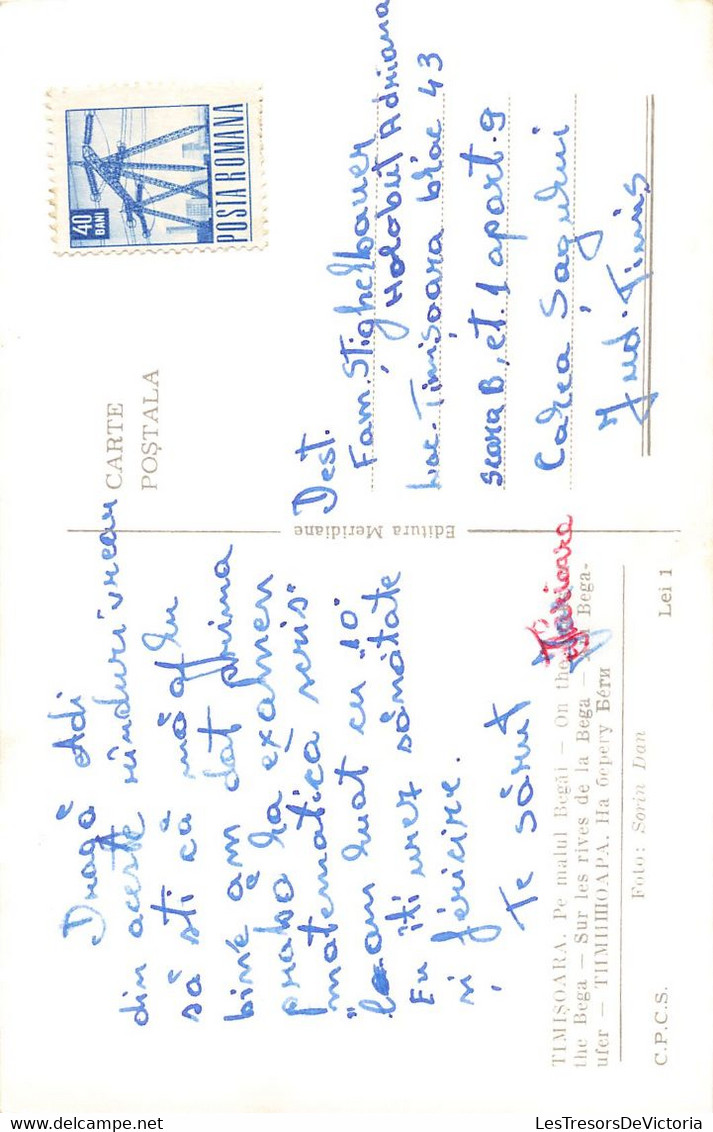 Dragă Adi
din aceste rînduri vreau
să sti că mă aflu
bine am dat prima
proba la examen
matematica scris"
l-am luat cu "10"
Eu îti urez sănătate
si fericire.
Te sărut
TIMIȘOARA. Pe malul Begăi — On the
the Bega — Sur les rives de la Bega — Bega-
ufer — ТИМИШОАРА. На берегу Беги
Foto: Sorin Dan
C.P.C.S.
Lei 1
Editura Meridiane
CARTE
POȘTALA
40
BANI
POSTA ROMANA
Dest.
Fam. Stighelbauer
Holobut Adriana
Loc. Timișoara bloc 43
scara B, et. 1 apart. 9
Calea Sagului
Jud. Timis
LesTresorsDeVictoria